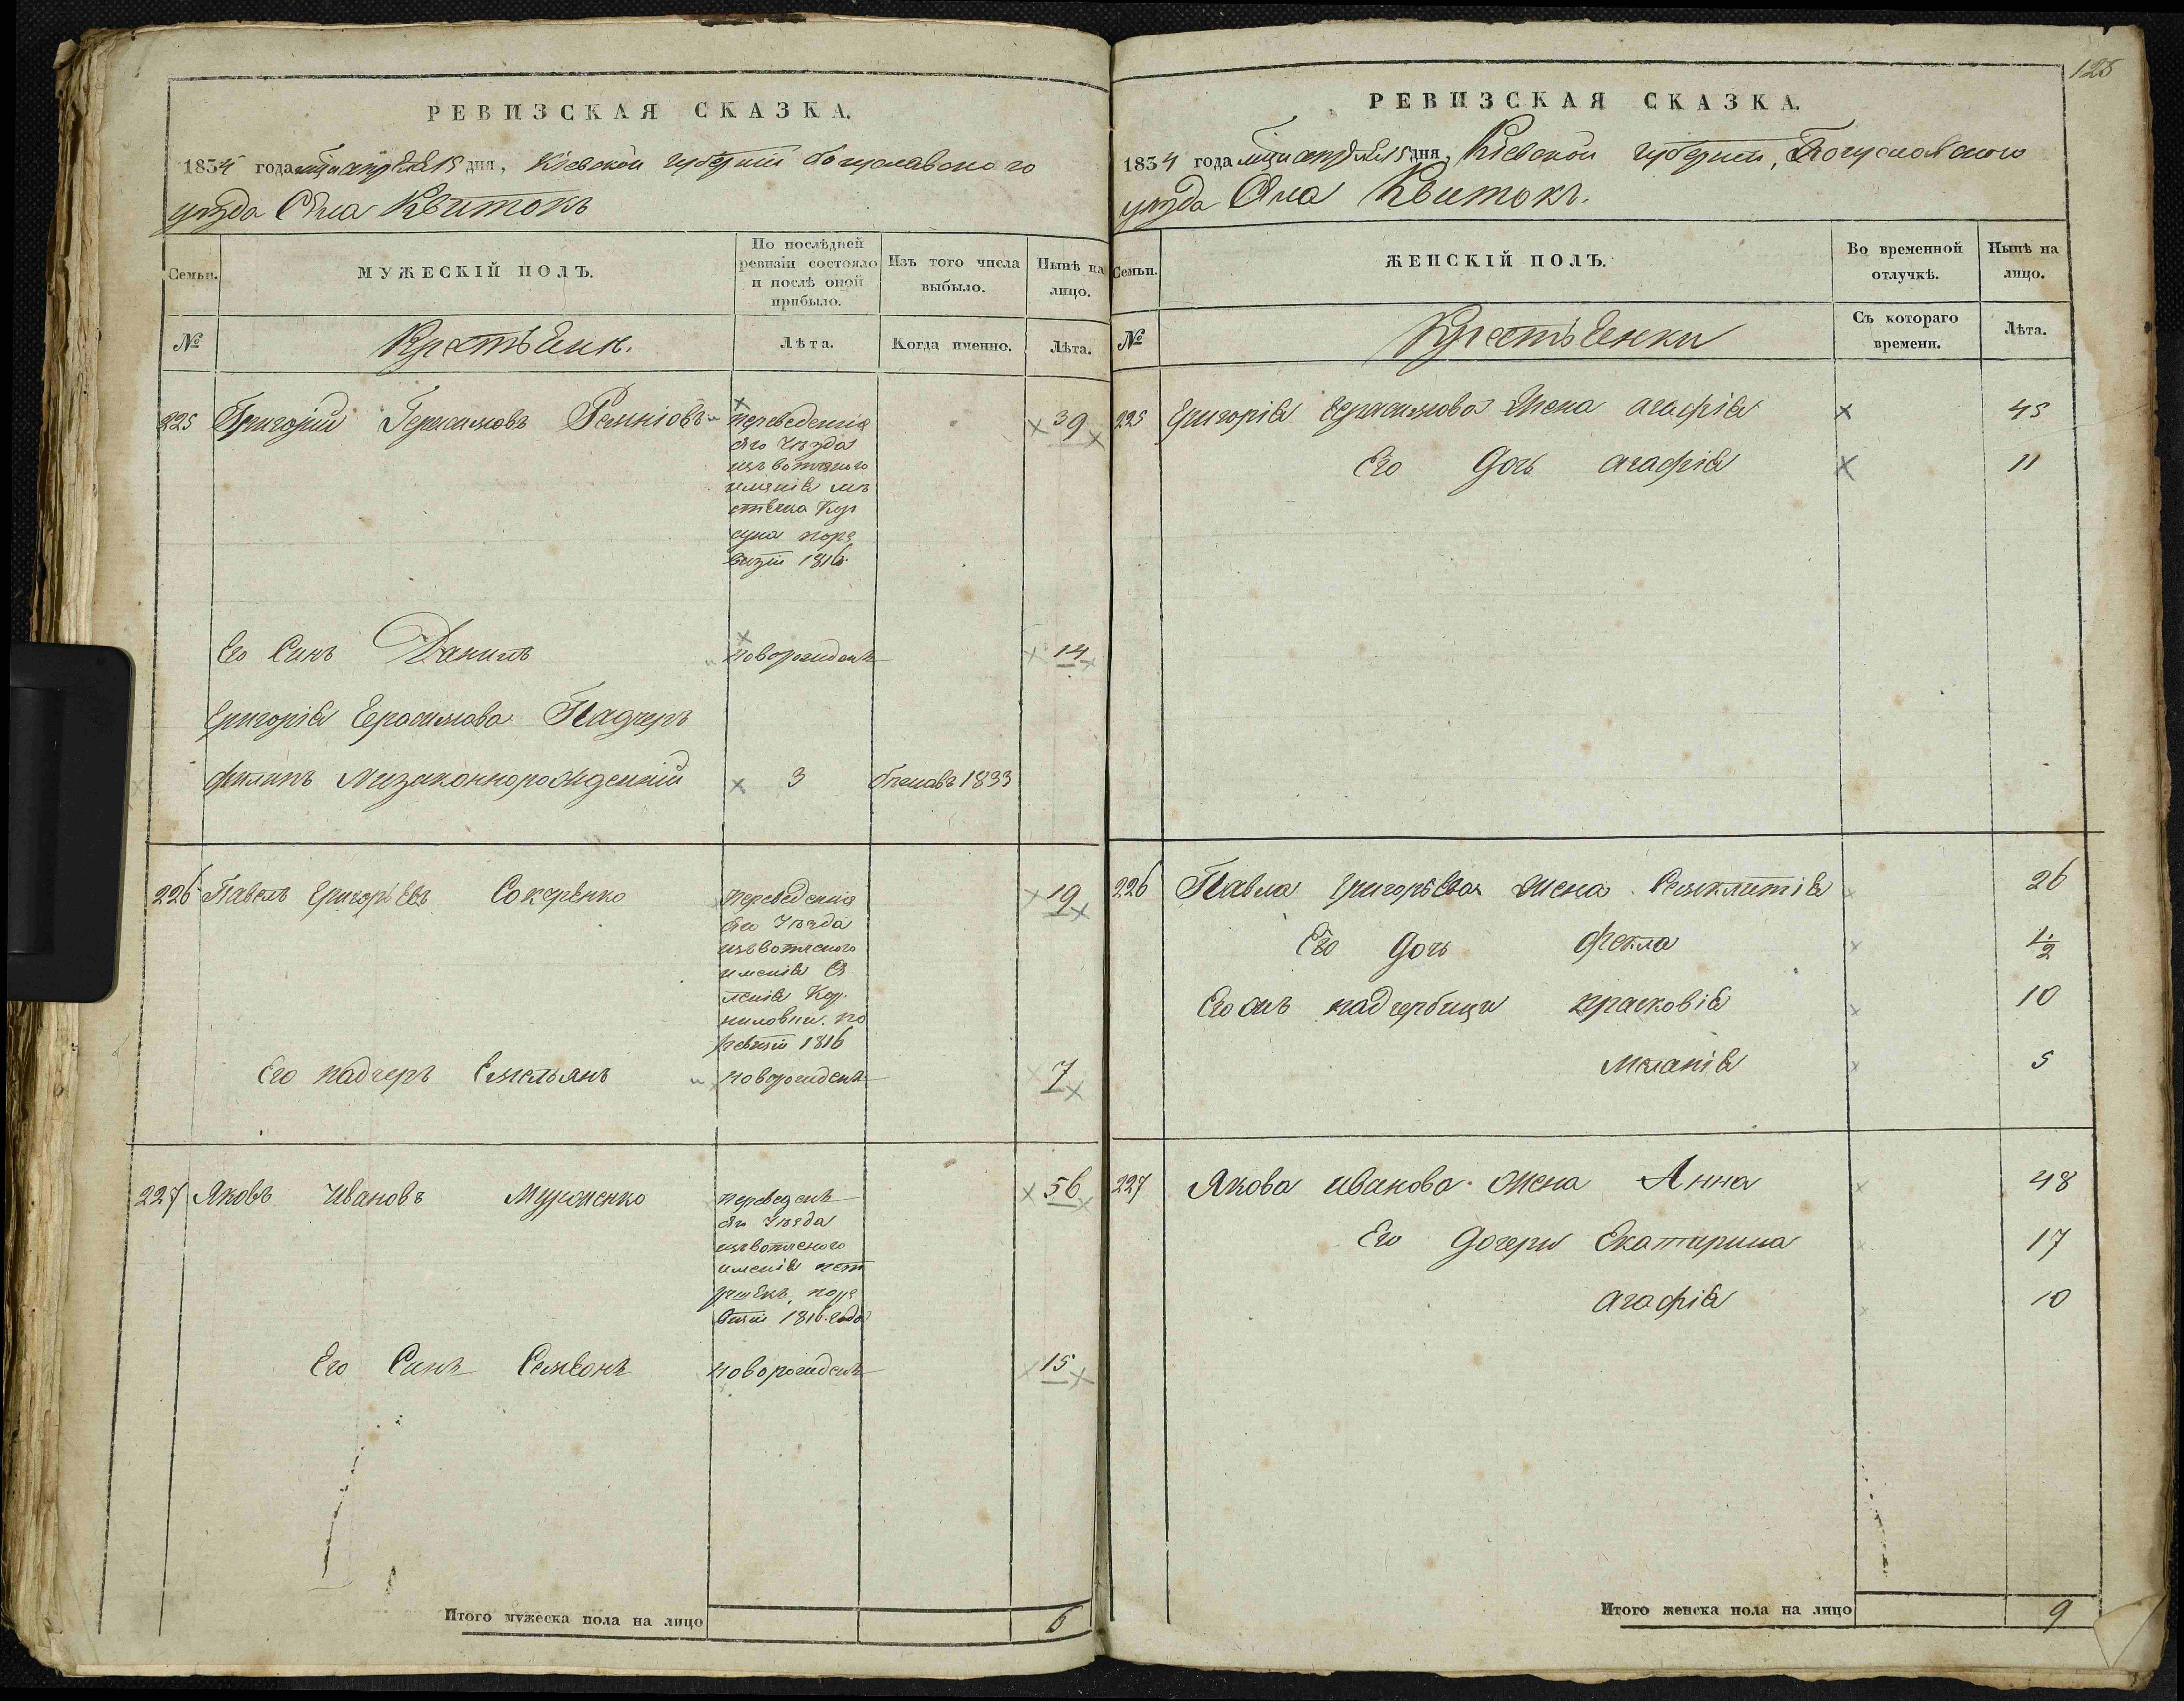 РЕВИЗСКАЯ СКАЗКА.
1834 года апреля 15 дня, Кіевской губерніи богуславского
уезда Села Квитокъ
Семьи.
МУЖЕСКІЙ ПОЛЪ.
По послѣдней ревизіи состояло и послѣ оной прибыло.
Изъ того числа выбыло.
Нынѣ на лицо.
№
Крестьяик.
Лѣта.
Когда именно.
Лѣта.
225 Григорій Герасимовъ
переведения
сего уѣзда
изъ вотчного
имѣнія мѣ
стечка Кор
суна поре
визіи 1816
39
Его Синъ Данилъ новорожденъ 14
Григорія Герасимова Падчеръ
Филипъ Низаконнорожденній 3 бежавъ 1833
226 Павелъ Григорьевъ Сокеренко
переведения
сего уезда
изъ вотчного
именія Се
ленія Кор
ниловки. по
ревизіи 1816
19
Его падчеръ Емельянъ новорожденъ 7
227 Яковъ Ивановъ
переведенъ
сего уезда
изъ вотчного
именія пет
рушекъ, поре
визіи 1816 года
56
Его Синъ Семеонъ новорожденъ 15
Итого мужеска пола на лицо 6
125
РЕВИЗСКАЯ СКАЗКА.
1834 года апреля 15 дня, Кіевской губерніи, Богуславского
уезда Села Квитокъ.
Семьи.
ЖЕНСКІЙ ПОЛЪ.
Во временной отлучкѣ.
Нынѣ на лицо.
№
Крестьянки
Съ котораго времени.
Лѣта.
225 Григорія Герасимова Жена агафія 45
Его дочь агафія 11
226 Павла Григорьева жена Семклитія 26
Его дочь Фекла 1/2
Его жъ падчерыци прасковія 10
Меланія 5
227 Якова иванова жена Анна 48
Его дочери Екатирина 17
агафія 10
Итого женска пола на лицо 9